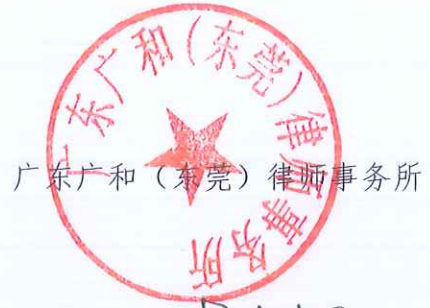 广东广和（东莞）律师事务所
广东广和（东莞）律师事务所